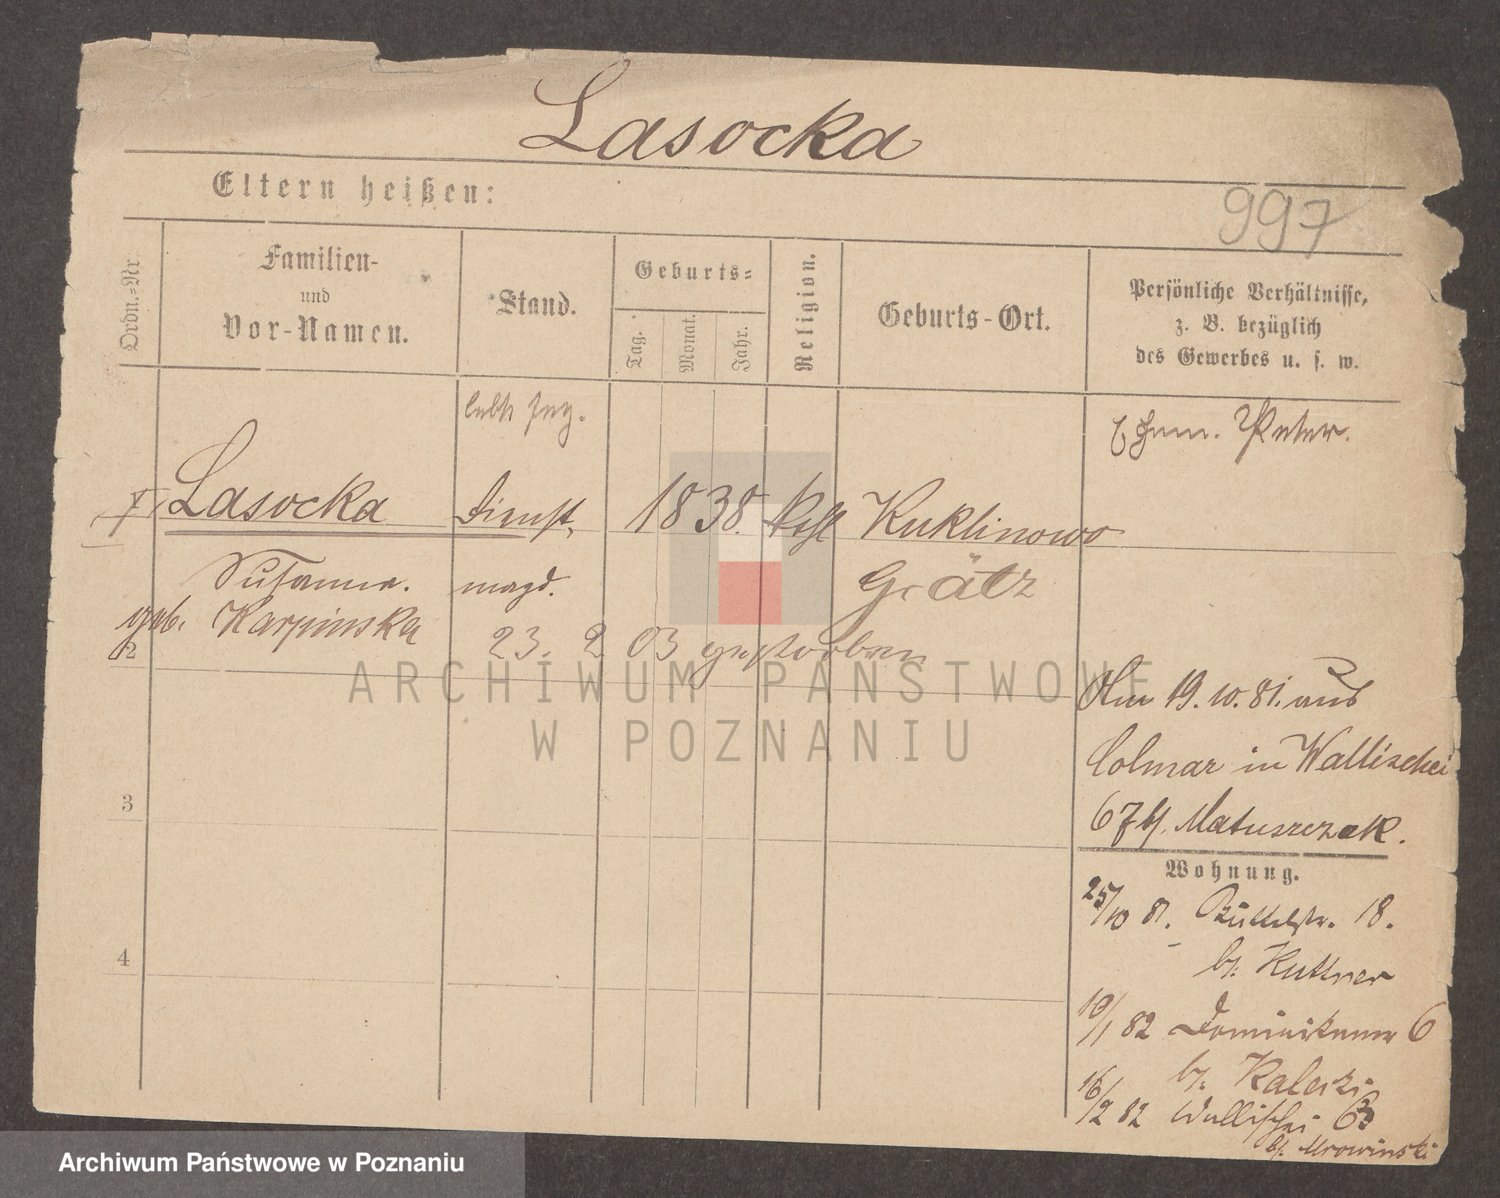 Lasocka
Eltern heißen:
997
Ordn.-Nr
Familien-
und
Vor-Namen.
Stand.
Geburts-
Tag.
Monat.
Jahr.
Religion.
Geburts-Ort.
Persönliche Verhältnisse,
z. B. bezüglich
des Gewerbes u. s. w.
Ehem. Peter.
Lasocka Dienst 1838. kath Kuklinowo
Susanna. magd. Grätz
geb. Karpinska 23. 2 03 gestorben
2
Am 19. 10. 81. aus
Colmar in Wallischei
67 bj. Matuszezak.
3
Wohnung.
25/10 81. Büttelstr. 18.
bj. Kuttner
4
10/1 82 Dominikaner 6
bj. Kaleski
16/2 82 Wallischei 63
bj. Mrowinski
ARCHIWUM PAŃSTWOWE
W POZNANIU
Archiwum Państwowe w Poznaniu